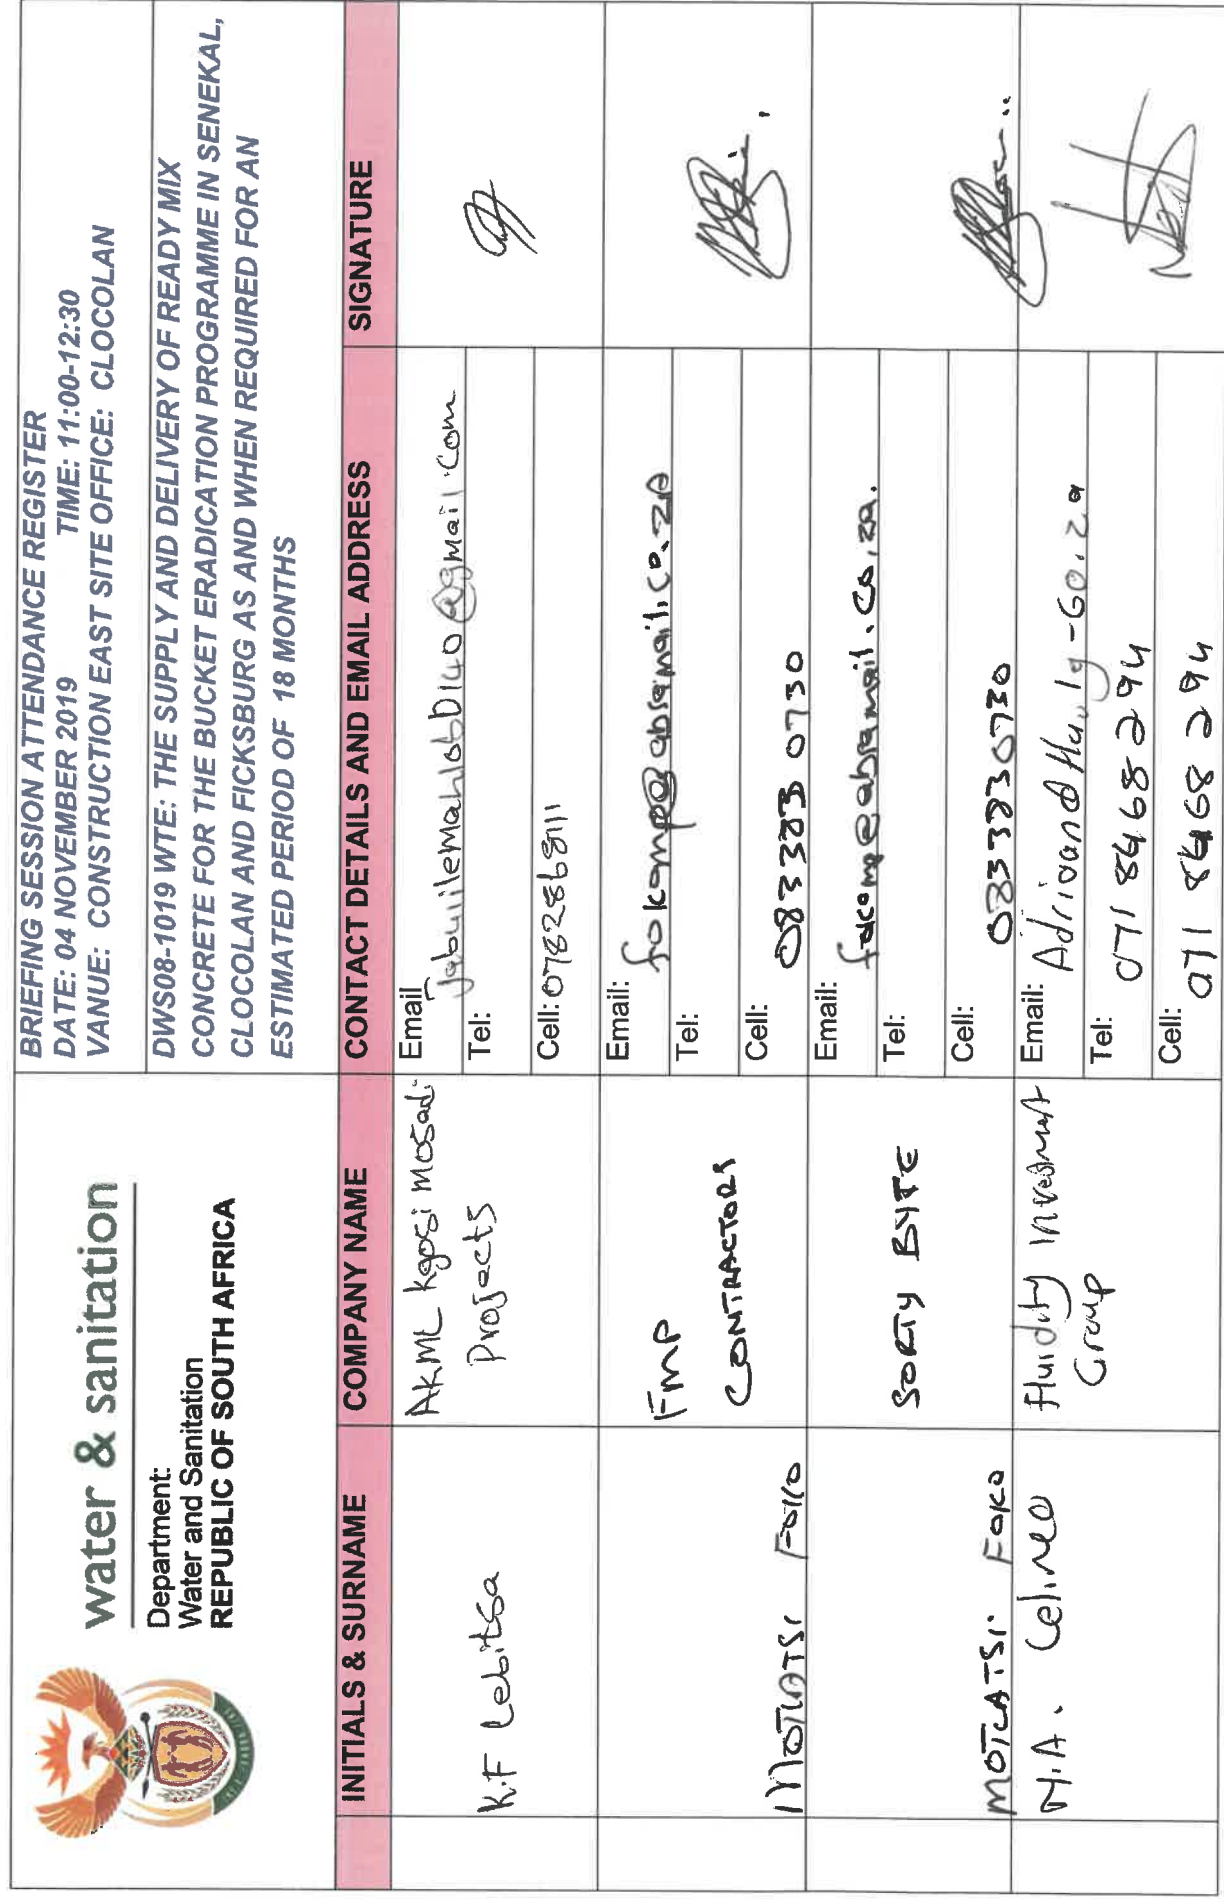 water & sanitation
Department:
Water and Sanitation
REPUBLIC OF SOUTH AFRICA
BRIEFING SESSION ATTENDANCE REGISTER
DATE: 04 NOVEMBER 2019 TIME: 11:00-12:30
VANUE: CONSTRUCTION EAST SITE OFFICE: CLOCOLAN
DWS08-1019 WTE: THE SUPPLY AND DELIVERY OF READY MIX
CONCRETE FOR THE BUCKET ERADICATION PROGRAMME IN SENEKAL,
CLOCOLAN AND FICKSBURG AS AND WHEN REQUIRED FOR AN
ESTIMATED PERIOD OF 18 MONTHS
INITIALS & SURNAME COMPANY NAME CONTACT DETAILS AND EMAIL ADDRESS SIGNATURE
K.F Lebitsa
AKML Kgosi Mosadi
Projects
Email
Tel:
Cell: 0782868111
MOTLATSI FOKO
FMP
CONTRACTORS
Email: fokomp@absamail.co.ZA
Tel:
Cell: 083 383 0730
MOTLATSI FOKO
SORTY BYTE
Email: fokomp@absamail.co.za.
Tel:
Cell: 083 383 0730
Fluidity Investment
Group
Email:
Tel: 071 8468294
Cell: 071 8468 294